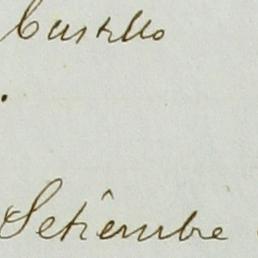 Custillo
.
Setiembre